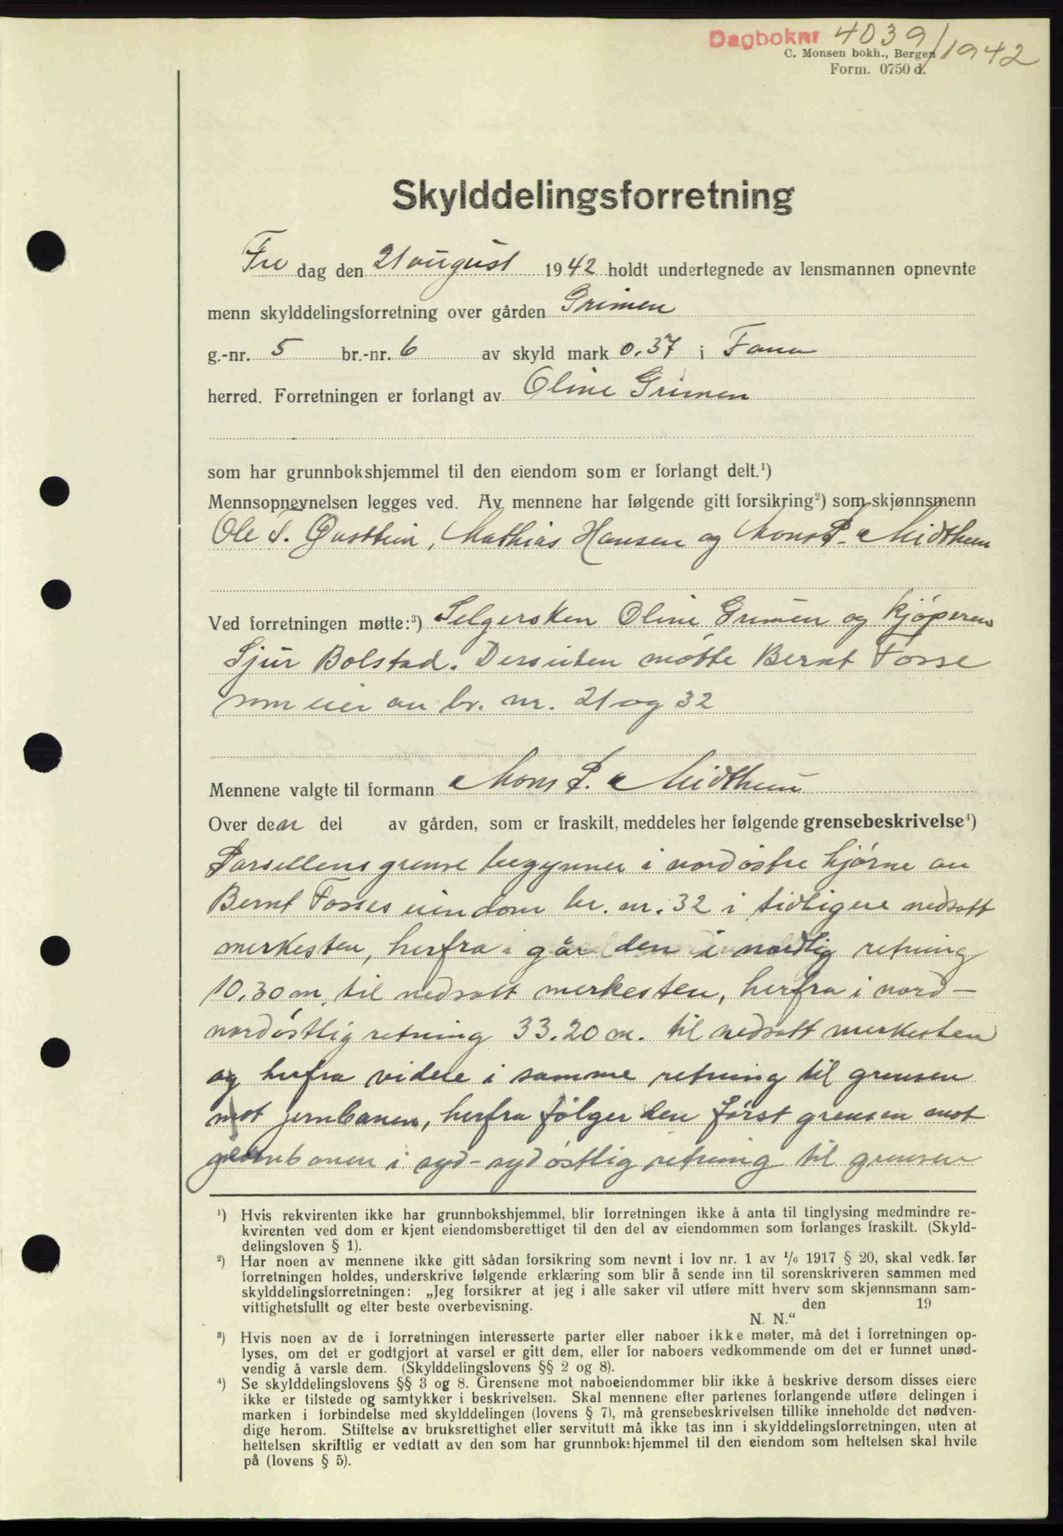 Dagboknr 4039/1942
C. Monsen bokh., Bergen
Form. 0750 d.
Skylddelingsforretning
Fre dag den 21 august 1942 holdt undertegnede av lensmannen opnevnte
menn skylddelingsforretning over gården Grimen
g.-nr. 5 br.-nr. 6 av skyld mark 0.37 i Fana
herred. Forretningen er forlangt av Oline Grimen
som har grunnbokshjemmel til den eiendom som er forlangt delt.¹)
Mennsopnevnelsen legges ved. Av mennene har følgende gitt forsikring²) som skjønnsmenn
Ole T. Øvsttun, Mathias Hansen og Mons P. Midthun
Ved forretningen møtte:³) Selgersken Oline Grimen og kjøperen
Sjur Bolstad. Dersuten møtte Bernt Fosse
som eier av br. nr. 21 og 32
Mennene valgte til formann Mons P. Midthun
Over den del av gården, som er fraskilt, meddeles her følgende grensebeskrivelse⁴)
Parsellens grense begynner i nordøstre hjørne av
Bernt Fosses eiendom br. nr. 32 i tidligere nedsatt
merkesten, herfra går den i nordlig retning
10.30 m. til nedsatt merkesten, herfra i nord-
nordøstlig retning 33.20 m. til nedsatt merkesten
og herfra videre i samme retning til grensen
mot jernbanen, herfra følger den først grensen mot
jernbanen i syd-sydøstlig retning til grensen
¹) Hvis rekvirenten ikke har grunnbokshjemmel, blir forretningen ikke å anta til tinglysing medmindre re-
kvirenten ved dom er kjent eiendomsberettiget til den del av eiendommen som forlanges fraskilt. (Skyld-
delingsloven § 1).
²) Har noen av mennene ikke gitt sådan forsikring som nevnt i lov nr. 1 av ¹/₆ 1917 § 20, skal vedk. før
forretningen holdes, underskrive følgende erklæring som blir å sende inn til sorenskriveren sammen med
skylddelingsforretningen: „Jeg forsikrer at jeg i alle saker vil utføre mitt hverv som skjønnsmann sam-
vittighetsfullt og efter beste overbevisning. den 19
N. N.“
³) Hvis noen av de i forretningen interesserte parter eller naboer ikke møter, må det i forretningen op-
lyses, om det er godtgjort at varsel er gitt dem, eller for naboers vedkommende om det er funnet unød-
vendig å varsle dem. (Skylddelingslovens §§ 2 og 8).
⁴) Se skylddelingslovens §§ 3 og 8. Grensene mot naboeiendommer blir ikke å beskrive dersom disses eiere
ikke er tilstede og samtykker i beskrivelsen. Skal mennene efter partenes forlangende utføre delingen i
marken i forbindelse med skylddelingen (lovens § 7), må grensebeskrivelsen tillike inneholde det nødven-
dige herom. Stiftelse av bruksrettighet eller servitutt må ikke tas inn i skylddelingsforretningen, uten at
heftelsen skriftlig er vedtatt av den som har grunnbokshjemmel til den eiendom som heftelsen skal hvile
på (lovens § 5).